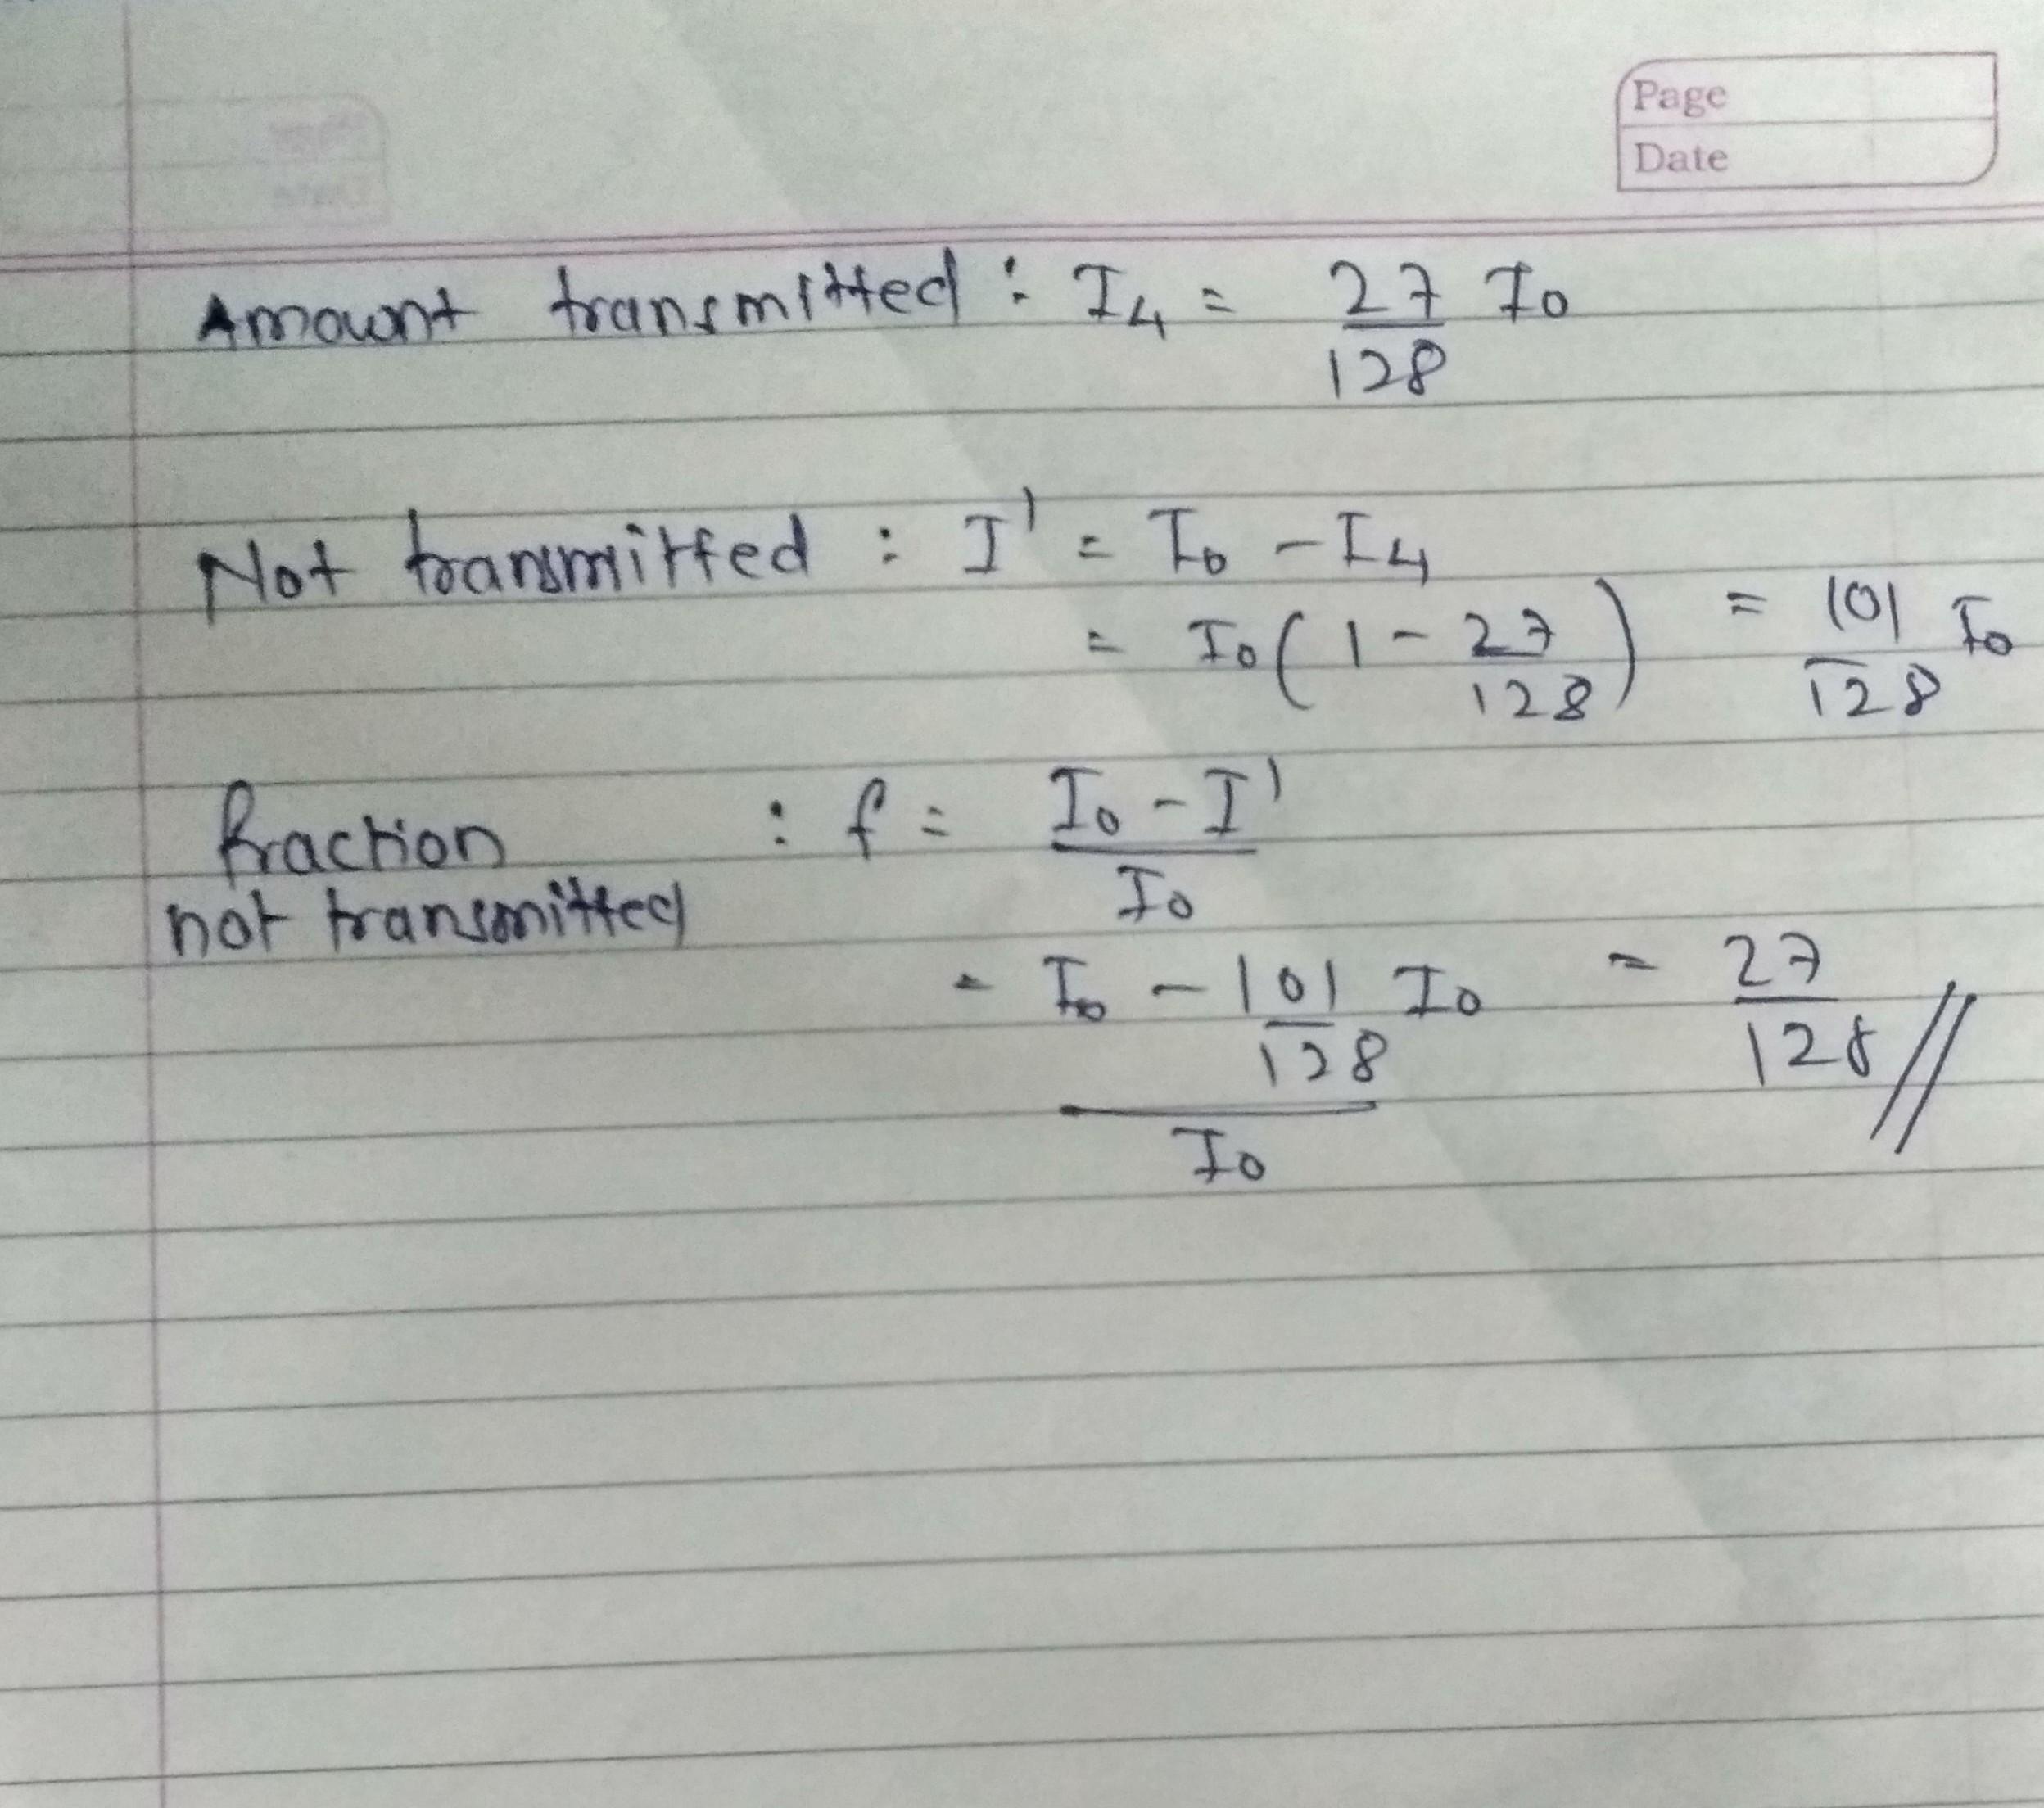 Page
Date
Amount transmitted : I₄ = 27/128 I₀
Not transmitted : I' = I₀ - I₄
= I₀ ( 1 - 27/128 ) = 101/128 I₀
fraction : f = (I₀ - I')/I₀
not transmitted
= (I₀ - 101/128 I₀)/I₀ = 27/128 //